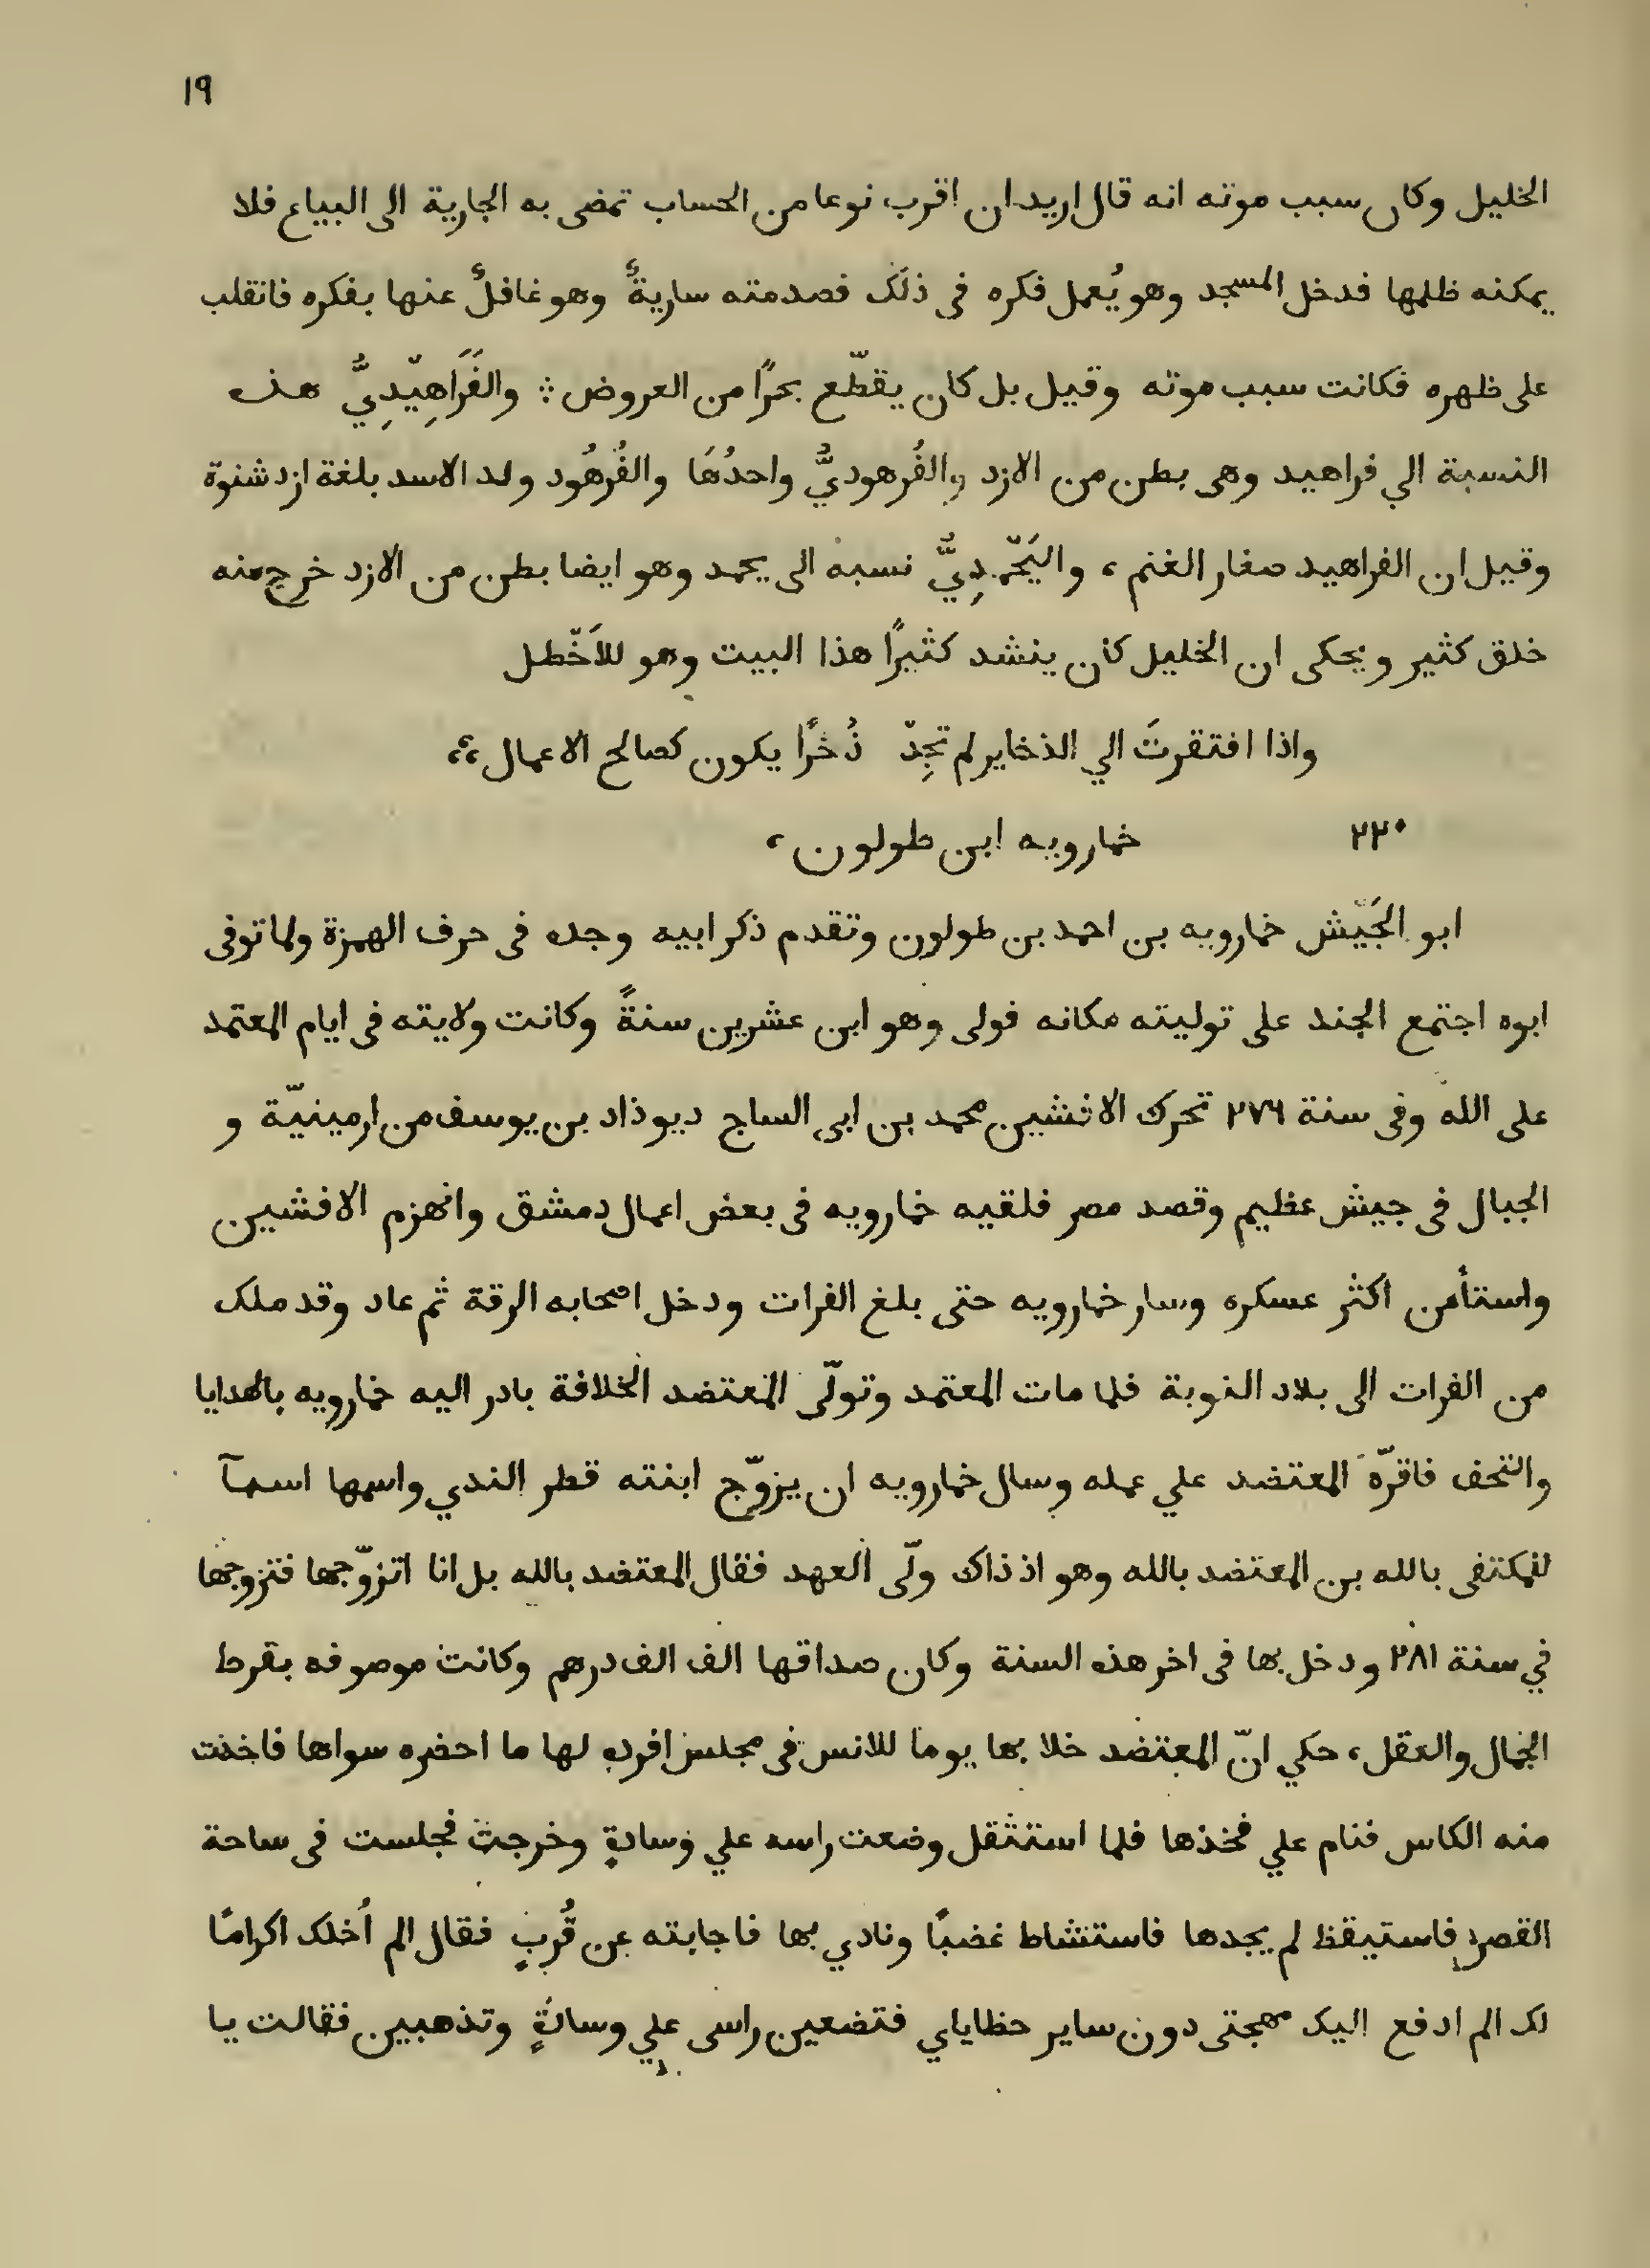 ١٩
الخليل وكان سبب موته انه قال اريد ان اقرب نوعا من الحساب تمضى به الجارية الى البياع فلا
يمكنه ظلمها فدخل المسجد وهو يُعمل فكره فى ذلك فصدمته ساريةٌ وهو غافلٌ عنها بفكره فانقلب
على ظهره فكانت سبب موته وقيل بل كان يقطّع بحرًا من العروض ܀ والفَرَاهِيْدِيُّ هذه
النسبة الي فراهيد وهى بطن من الازد والفُرهوديُّ واحدُهَا والفُرهُود ولد الاسد بلغة ازد شنوة
وقيل ان الفراهيد صغار الغنم ، واليَحْمِدِيُّ نسبة الى يحمد وهو ايضا بطن من الازد خرج منه
خلق كثير ويحكى ان الخليل كان ينشد كثيرًا هذا البيت وهو للاَخْطل
واذا افتقرتَ الي الذخاير لم تجِدْ ذُخرًا يكون كصالح الاعمال ،،
٢٢٠ خمارويه ابن طولون ،
ابو الجَيْش خمارويه بن احمد بن طولون وتقدم ذكر ابيه وجده فى حرف الهمزة ولما توفى
ابوه اجتمع الجند على توليته مكانه فولى وهو ابن عشرين سنةً وكانت ولايته فى ايام المعتمد
على الله وفى سنة ٢٧٦ تحرك الافشين محمد بن ابى الساج ديوذاد بن يوسف من ارمينيّة و
الجبال فى جيش عظيم وقصد مصر فلقيه خمارويه فى بعض اعمال دمشق وانهزم الافشين
واستأمن اكثر عسكره وسار خمارويه حتى بلغ الفرات ودخل اصحابه الرقة ثم عاد وقد ملك
من الفرات الى بلاد النوبة فلما مات المعتمد وتولّى المعتضد الخلافة بادر اليه خمارويه بالهدايا
والتحف فاقرّه المعتضد علي عمله وسال خمارويه ان يزوّج ابنته قطر الندي واسمها اسمآ
للمكتفى بالله بن المعتضد بالله وهو اذ ذاك ولّى العهد فقال المعتضد بالله بل انا اتزوّجها فتزوجها
في سنة ٢٨١ ودخل بها فى اخر هذه السنة وكان صداقها الف الف درهم وكانت موصوفه بفرط
الجمال والعقل ، حكي انّ المعتضد خلا بها يوما للانس فى مجلس افرده لها ما احضره سواها فاخذت
منه الكاس فنام علي فخذها فلما استثقل وضعت راسه علي وسادةٍ وخرجت فجلست فى ساحة
القصر فاستيقظ لم يجدها فاستشاط غضبًا ونادي بها فاجابته عن قُربٍ فقال الم اُخلك اكرامًا
لك الم ادفع اليك مهجتى دون ساير حظاياي فتضعين راسى علي وسادةٍ وتذهبين فقالت يا